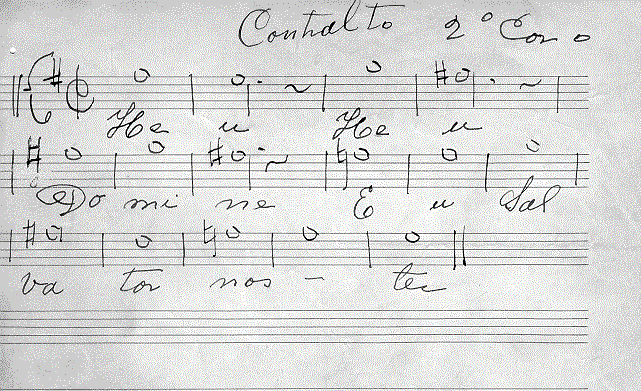 Contralto 2º Coro
He u He u
Do mi ne E u Sal
va tor nos - ter